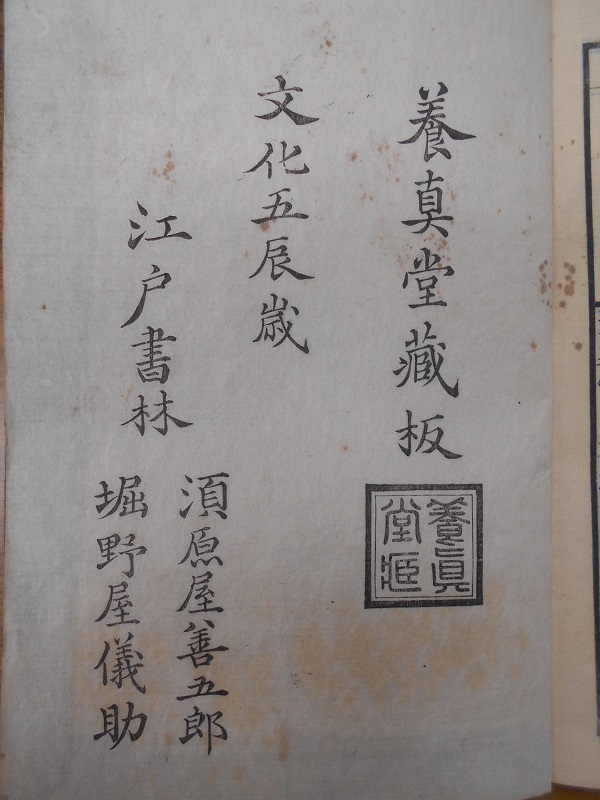 養真堂藏板
養眞
堂藏
文化五辰歳
江戸書林
須原屋善五郎
堀野屋儀助